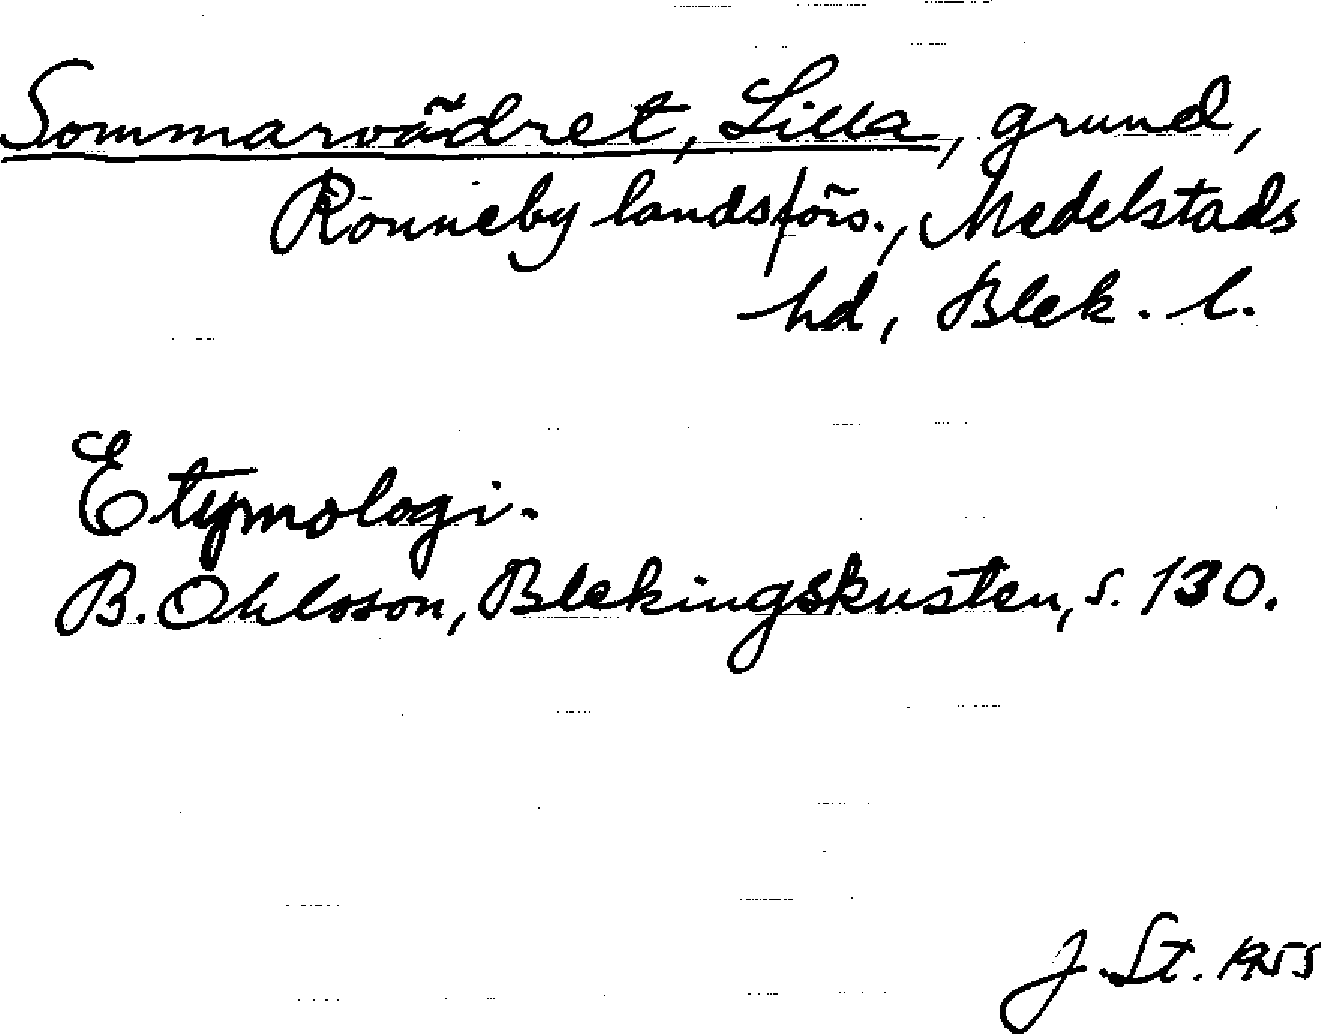 Sommarvädret, Lilla, grund,
Ronneby landsförs., Medelstads
hd, Blek. l.
Etymologi.
B. Ohlsson, Blekingskusten, s. 130.
J. St. 1955